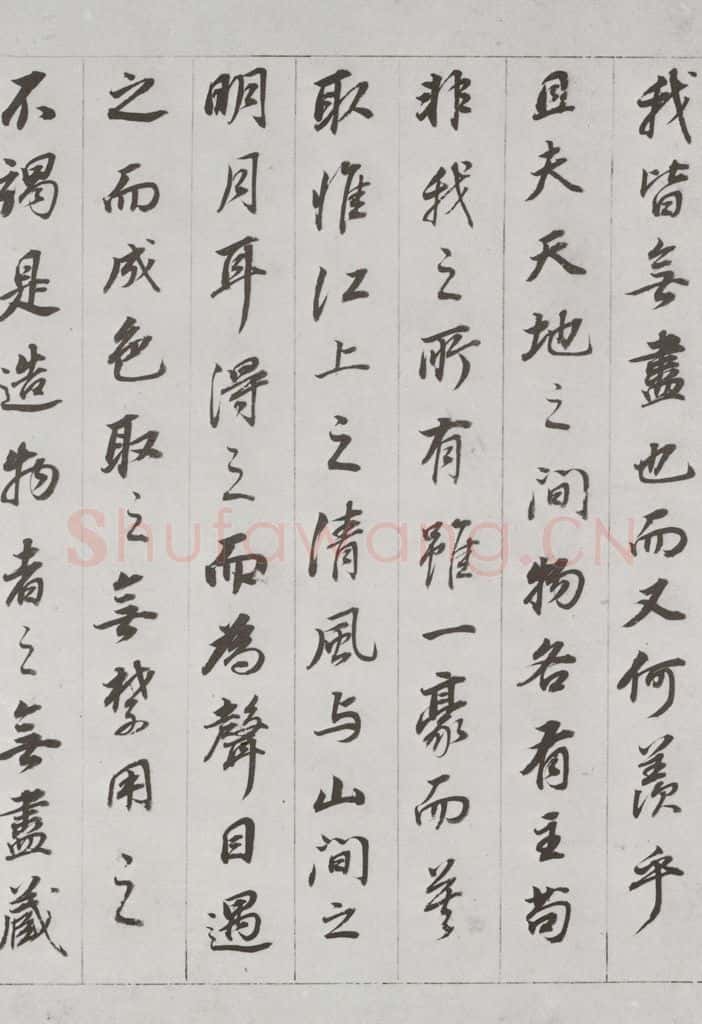 我皆無盡也而又何羨乎
且夫天地之間物各有主苟
非我之所有雖一豪而莫
取惟江上之清風与山間之
明月耳得之而為聲目遇
之而成色取之無禁用之
不竭是造物者之無盡藏
Shufawang.CN